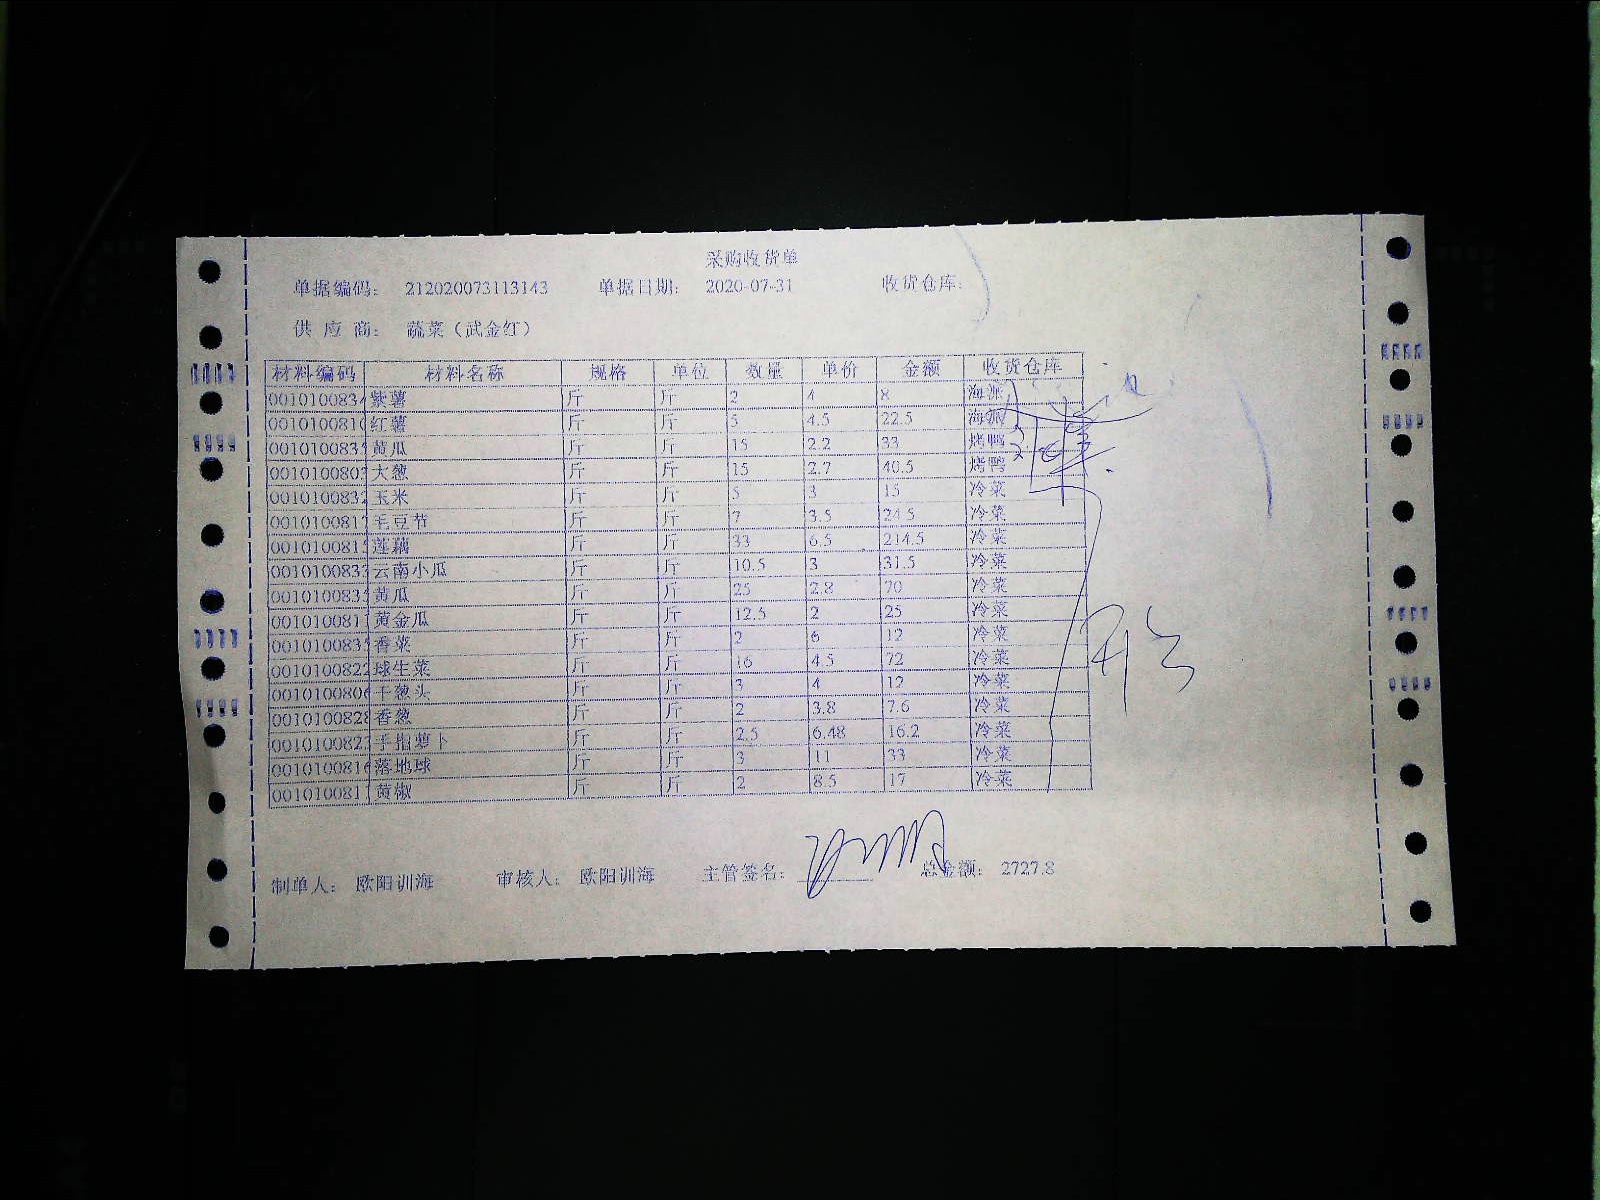 采购收货单
单据编码： 212020073113143 单据日期： 2020-07-31 收货仓库：
供 应 商： 蔬菜（武金红）
材料编码 材料名称 规格 单位 数量 单价 金额 收货仓库
001010083 紫薯 斤 斤 2 4 8 海派
001010081 红薯 斤 斤 5 4.5 22.5 海派
001010083 黄瓜 斤 斤 15 2.2 33 烤鸭
001010080 大葱 斤 斤 15 2.7 40.5 烤鸭
001010083 玉米 斤 斤 5 3 15 冷菜
001010081 毛豆节 斤 斤 7 3.5 24.5 冷菜
001010081 莲藕 斤 斤 33 6.5 214.5 冷菜
001010083 云南小瓜 斤 斤 10.5 3 31.5 冷菜
001010083 黄瓜 斤 斤 25 2.8 70 冷菜
001010081 黄金瓜 斤 斤 12.5 2 25 冷菜
001010083 香菜 斤 斤 2 6 12 冷菜
001010082 球生菜 斤 斤 16 4.5 72 冷菜
001010080 干葱头 斤 斤 3 4 12 冷菜
001010082 香葱 斤 斤 2 3.8 7.6 冷菜
001010082 手指萝卜 斤 斤 2.5 6.48 16.2 冷菜
001010081 落地球 斤 斤 3 11 33 冷菜
001010081 黄椒 斤 斤 2 8.5 17 冷菜
制单人： 欧阳训海 审核人： 欧阳训海 主管签名： 总金额： 2727.8